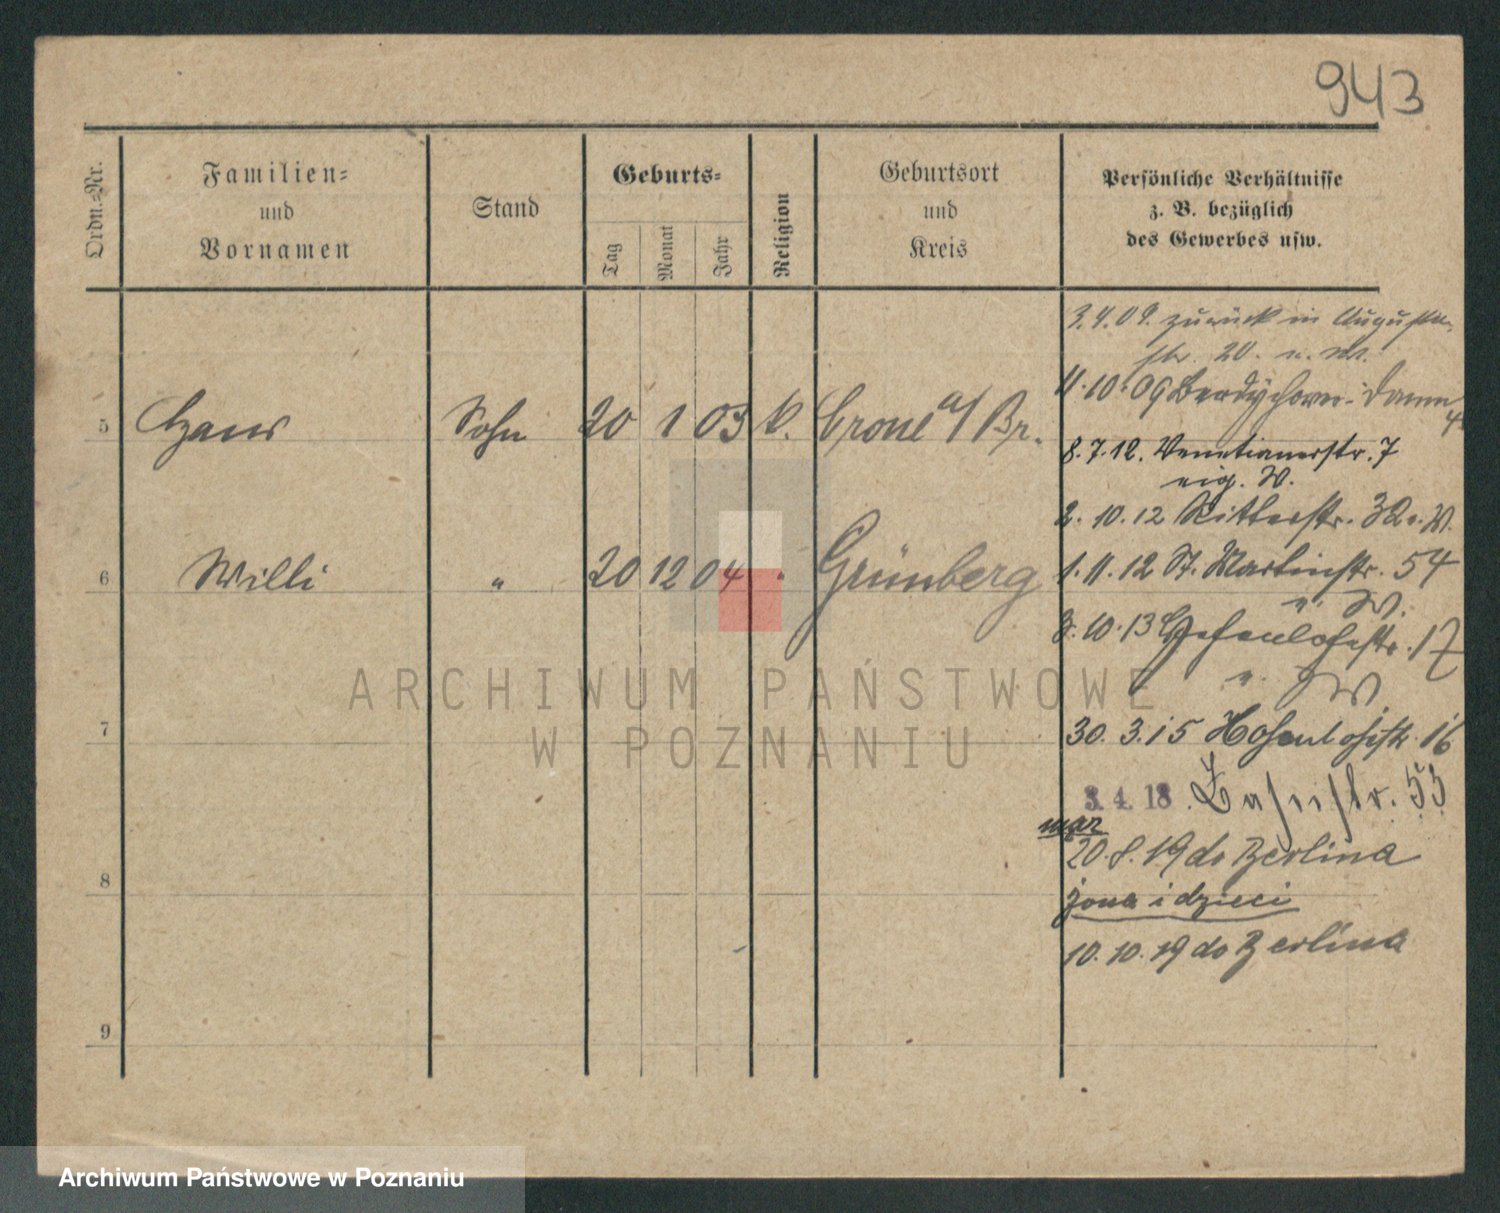 943
Ordn.-Nr.
Familien-
und
Vornamen
Stand
Geburts-
Tag
Monat
Jahr
Religion
Geburtsort
und
Kreis
Persönliche Verhältnisse
z. B. bezüglich
des Gewerbes usw.
3.4.09. zurück in Augusta-
str. 20.
11.10.09 Berdychower-Damm
4
5 Hans Sohn 20 1 03 k. Crone a/Br.
8.7.12. Venetianerstr. 7
eig. W.
2.10.12 Ritterstr. 32 e. W.
6 Willi " 20 12 04 " Grünberg
1.11.12 St. Martinstr. 54
e. W.
3.10.13 Hohenlohestr. 17
e. W
30.3.15 Hohenlohestr. 16
3.4.18.
20.8.19 do Berlina
żona i dzieci
10.10.19 do Berlina
7
8
9
ARCHIWUM PAŃSTWOWE
W POZNANIU
Archiwum Państwowe w Poznaniu